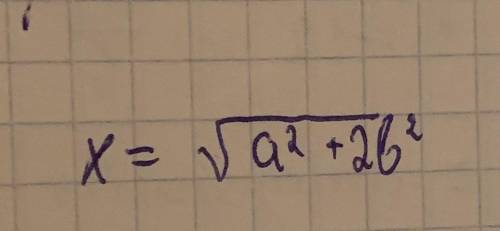 x = √a² + 2b²